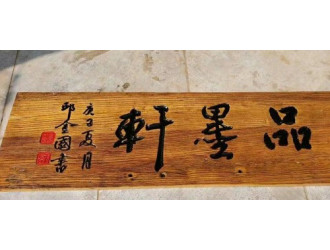 品墨軒
庚子夏月
邱金國書